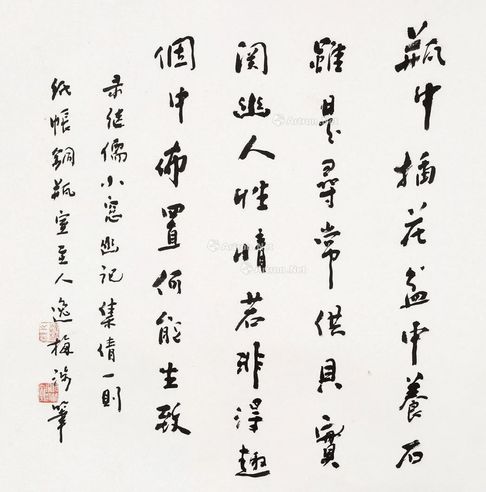 瓶中插花盆中養石
雖是尋常供具實
関幽人性情若非得趣
個中佈置何能生致
录继儒小窓幽记集倩一則
纸帳銅瓶室主人逸梅涉筆